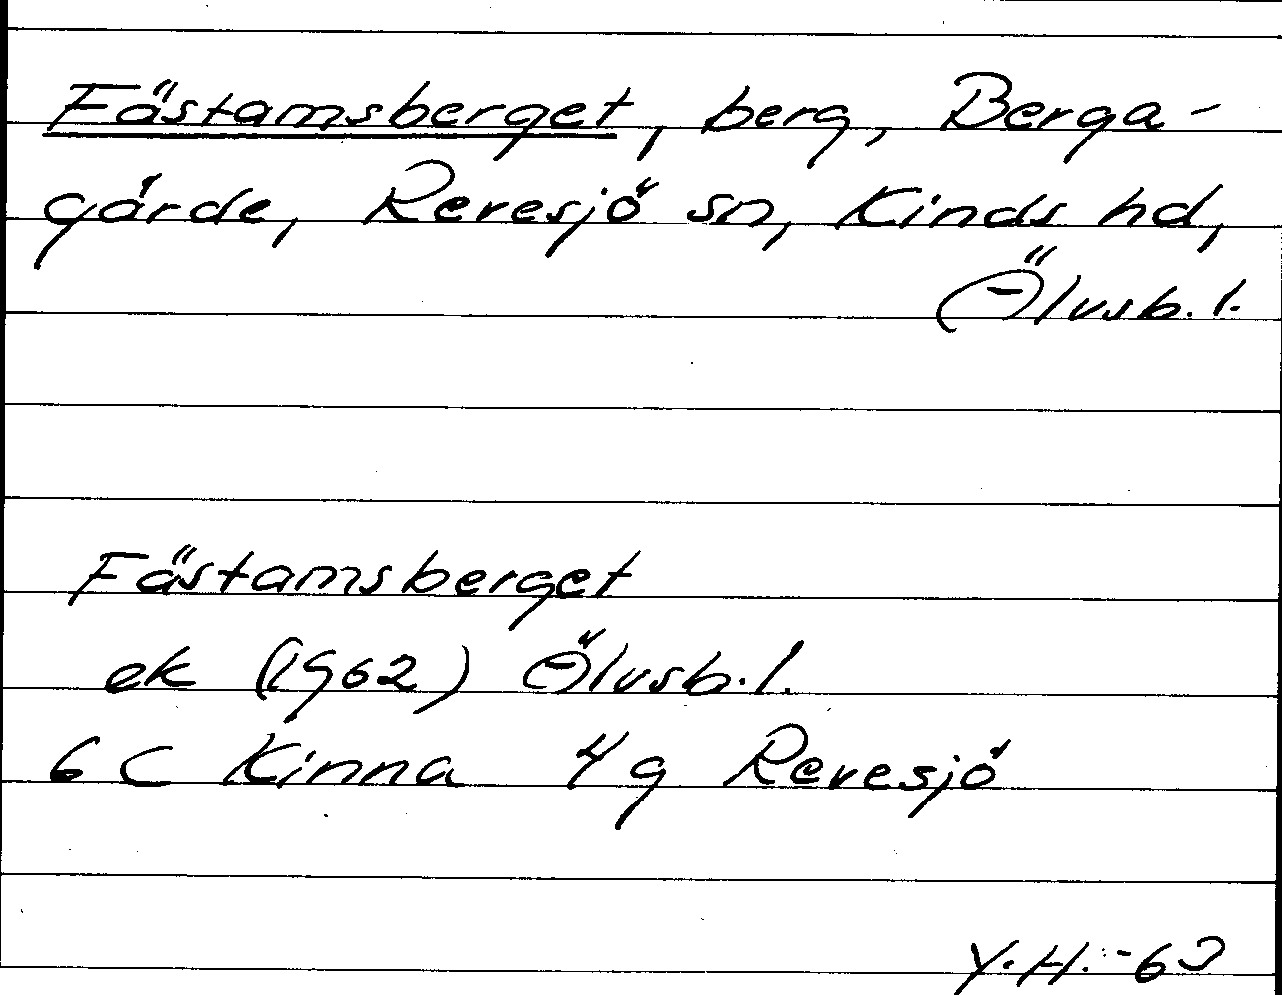 Fästamsberget, berg, Berga-
gärde, Revesjö sn, Kinds hd,
Älvsb. l.
Fästamsberget
ek (1962) Älvsb. l.
6 C Kinna 4 g Revesjö
Y.H. -63